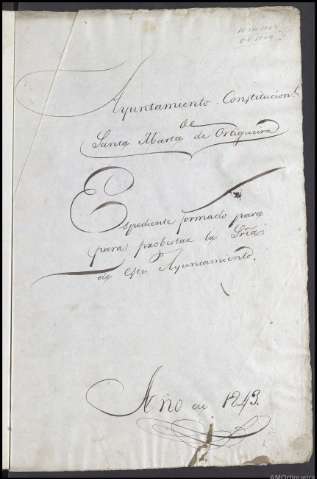 Ayuntamiento Constitucional
de
Santa Marta de Ortigueira
Espediente formado para
para probistar la Sría
de este Ayuntamiento.
Año de 1843.